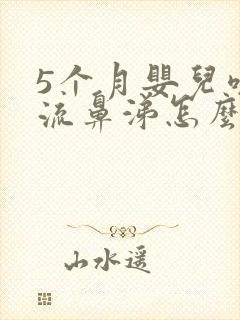 5个月嬰兒
流鼻涕怎麼
山水遥